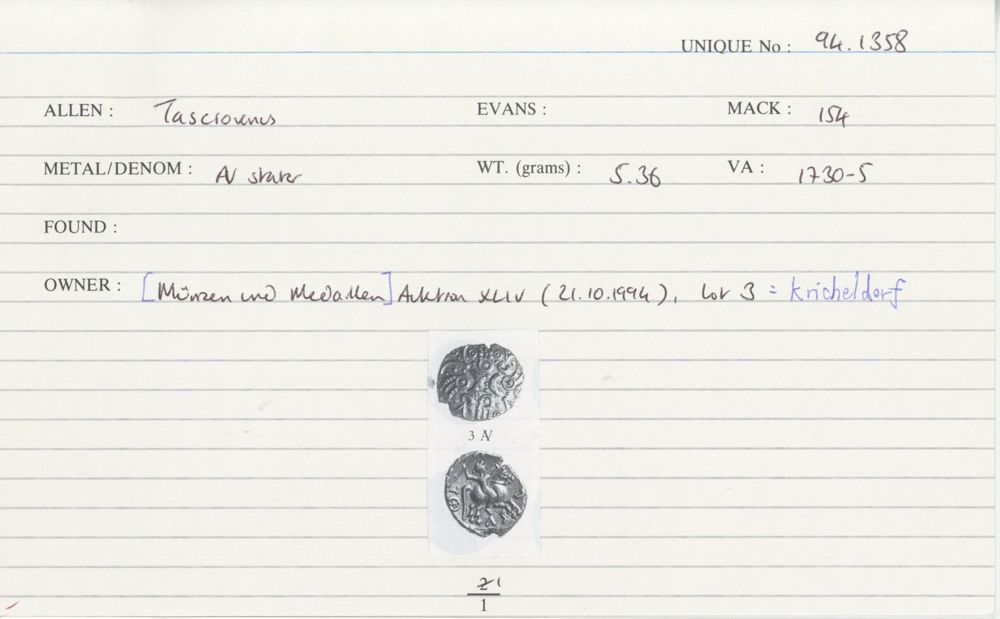 UNIQUE No : 94.1358
ALLEN : Tasciovanus EVANS : MACK : 154
METAL/DENOM : AV stater WT. (grams) : 5.36 VA : 1730-5
FOUND :
OWNER : [Münzen und Medaillen] Auktion XLIV (21.10.1994), Lot 3 = Kricheldorf
3 AV
1